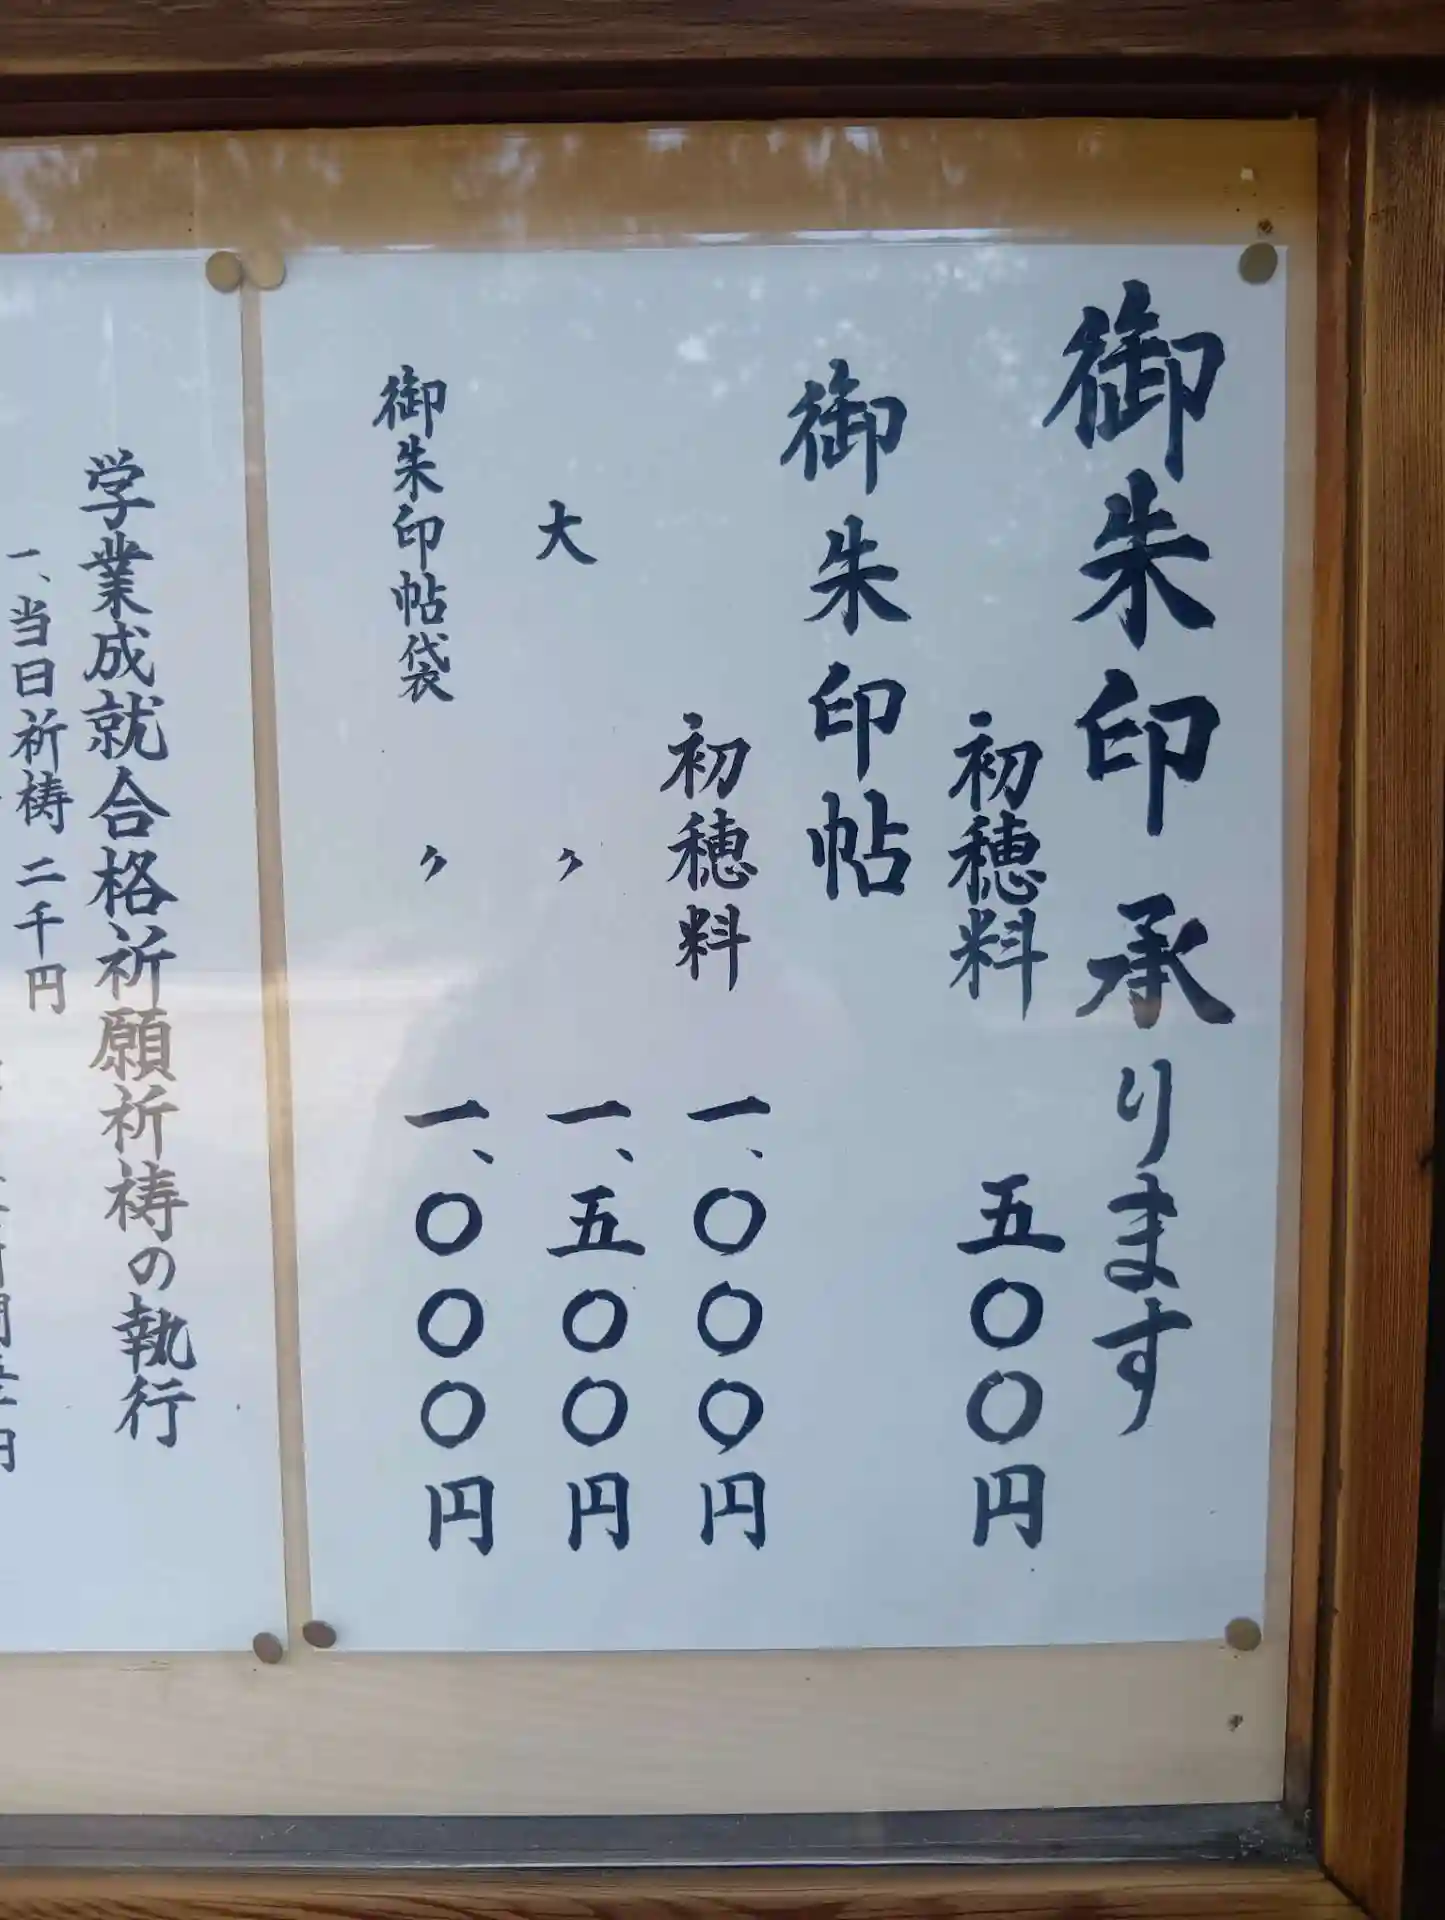 御朱印 承ります
初穂料 五〇〇円
御朱印帖
初穂料 一、〇〇〇円
大 〃 一、五〇〇円
御朱印帖袋 〃 一、〇〇〇円
学業成就合格祈願祈祷の執行
一、当日祈祷 二千円